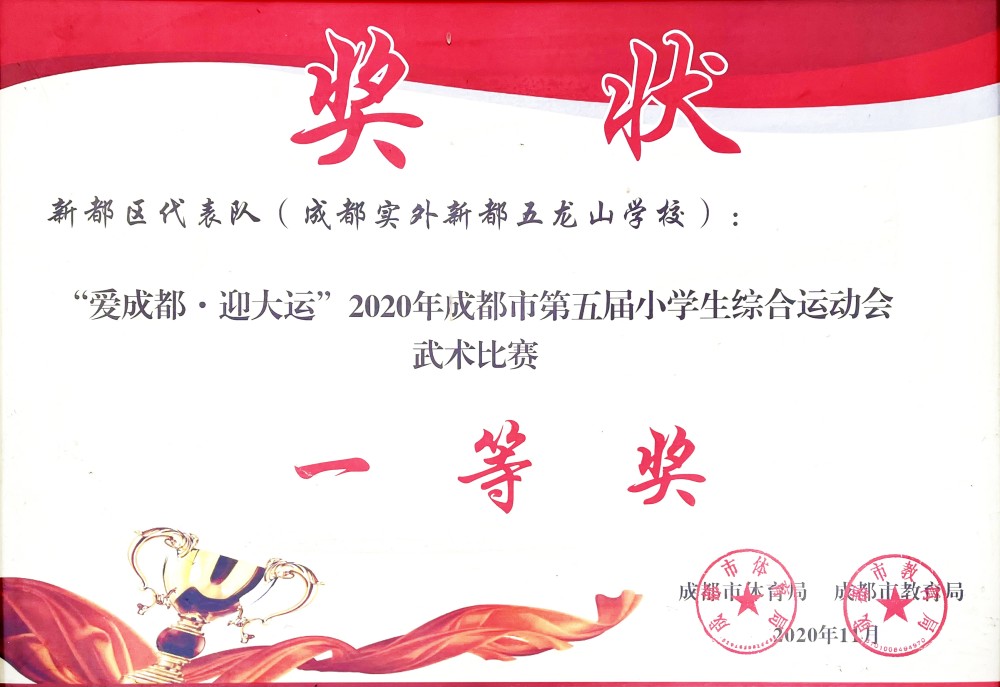 奖状
新都区代表队（成都实外新都五龙山学校）：
“爱成都·迎大运”2020年成都市第五届小学生综合运动会
武术比赛
一等奖
成都市体育局 成都市教育局
2020年11月
成都市体育局
成都市教育局